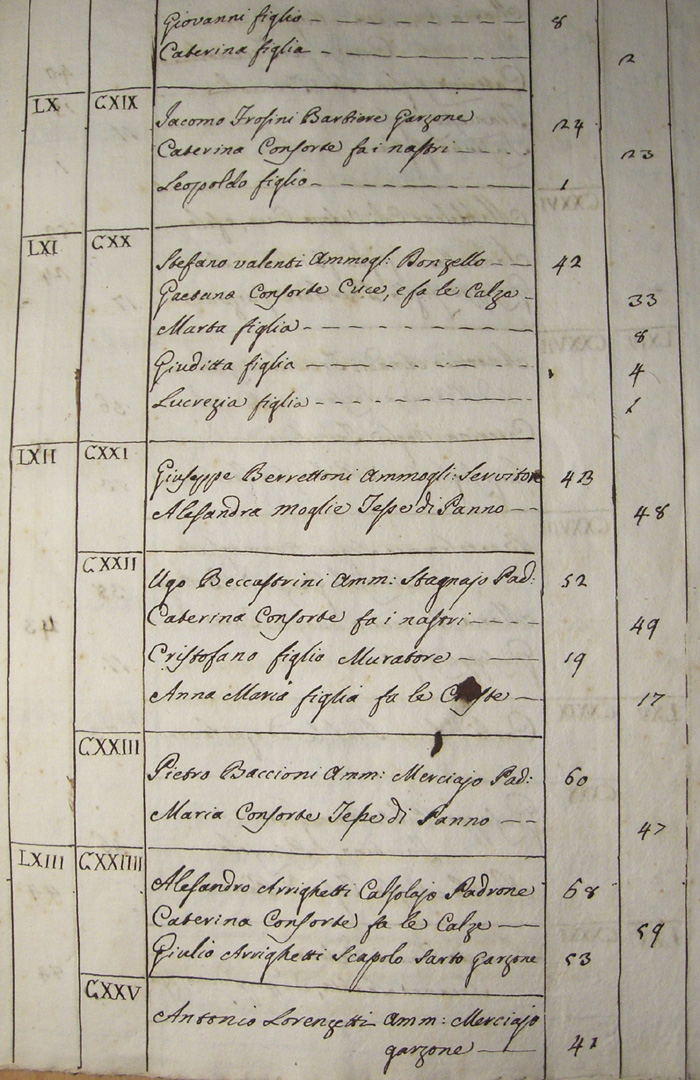 Giovanni figlio 8
Caterina figlia 2
LX CXIX Iacomo Frosini Barbiere Garzone 24
Caterina Consorte fa i nastri 23
Leopoldo figlio 1
LXI CXX Stefano Valenti Ammogl: Donzello 42
Gaetana Consorte Cuce, e fa le Calze 33
Marta figlia 8
Giuditta figlia 4
Lucrezia figlia 1
LXII CXXI Giuseppe Berrettoni Ammogli: Servitore 43
Alesandra Moglie Tesse di Panno 48
CXXII Ugo Beccastrini Amm: Stagnajo Pad: 52
Caterina Consorte fa i nastri 49
Cristofano figlio Muratore 19
Anna Maria figlia fa le 17
CXXIII Pietro Baccioni Amm: Merciajo Pad: 60
Maria Consorte Tesse di Panno 47
LXIII CXXIIII Alesandro Arrighetti Calsolajo Padrone 68
Caterina Consorte fa le Calze 59
Giulio Arrighetti Scapolo Sarto Garzone 53
CXXV Antonio Lorenzetti Amm: Merciajo
garzone 41